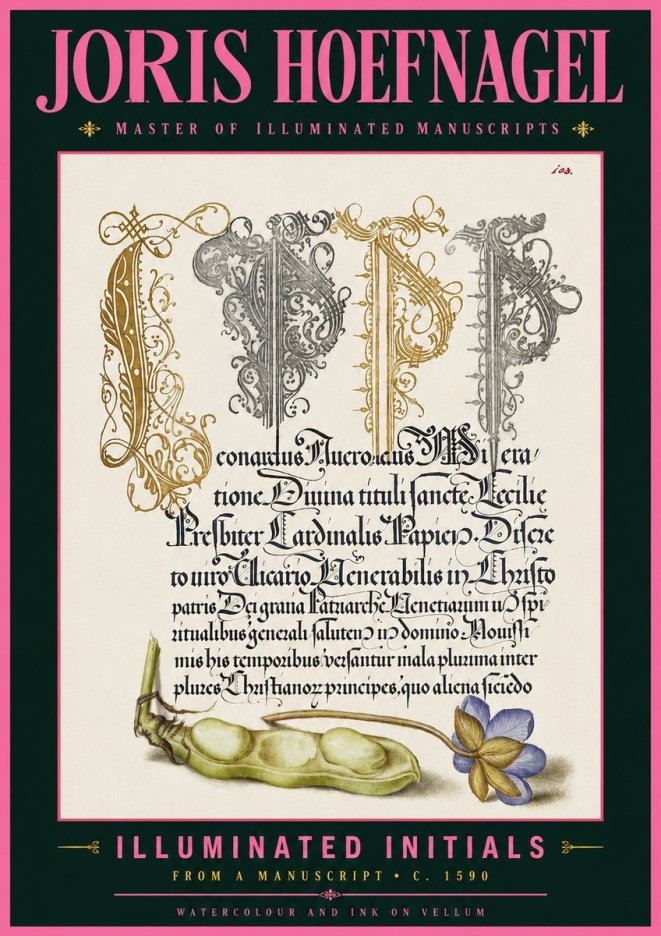 JORIS HOEFNAGEL
MASTER OF ILLUMINATED MANUSCRIPTS
103.
L P P P
Misera/
tione Diuina tituli sancte Cecilie
Presbiter Cardinalis Papien. Discre
to uiro Vicario Venerabilis in Christo
patris Dei Patriarche Venetiarum spi-
ritualibus generali saluten in domino. Nouissi
mis his temporibus versantur mala plurima inter
plures Christianor principes, quo aliena
ILLUMINATED INITIALS
FROM A MANUSCRIPT • C. 1590
WATERCOLOUR AND INK ON VELLUM